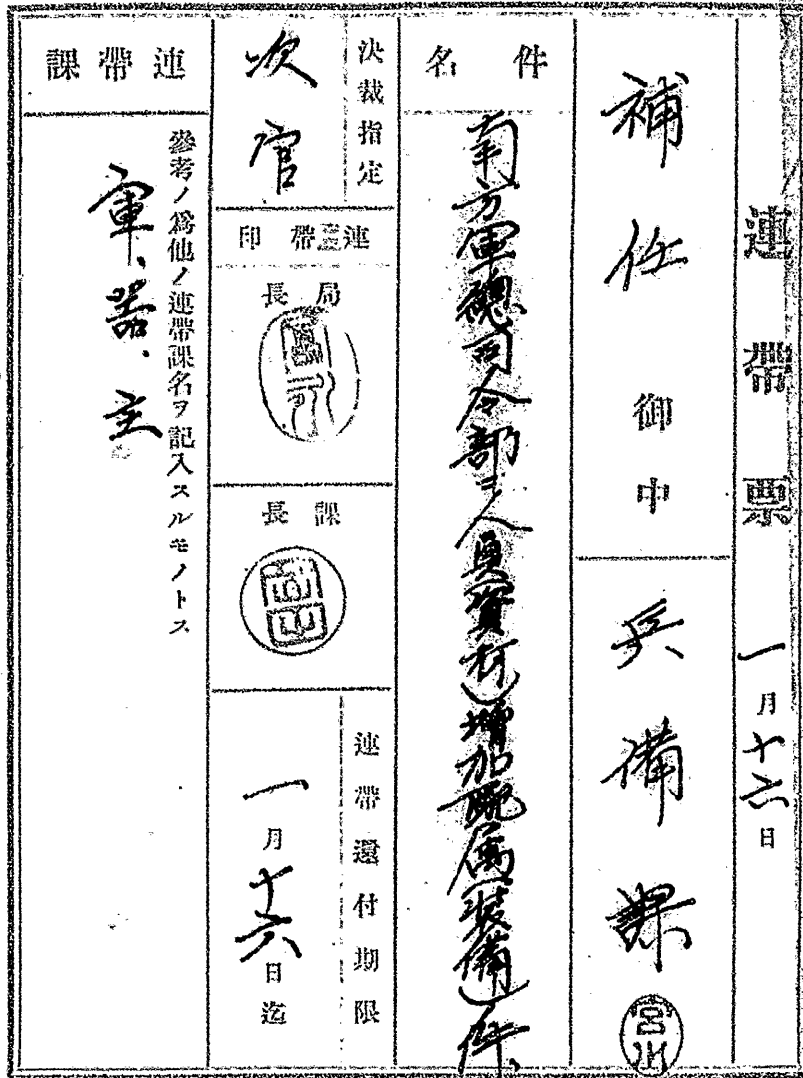 連帶票 一月十六日
補任御中
兵備課
宮川
件名
南方軍總司令部ニ人員(資材)增加配屬(裝備)ノ件
決裁指定
次官
連帶印
局長
課長
連帶還付期限
一月十六日迄
連帶課
參考ノ爲他ノ連帶課名ヲ記入スルモノトス
軍、器、主